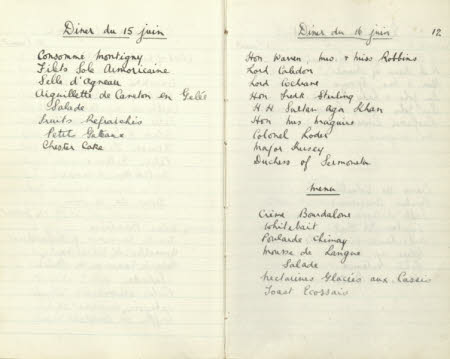 Diner du 15 juin
Consommé Montigny
Filets Sole Armoricaine
Selle d'Agneau
Aiguillettes de Caneton en Gelée
Salade
Fruits Refraichis
Petit Gateaux
Chester Cake
Diner du 16 juin
12.
Hon. Warren, Mrs. & Miss Robbins
Lord Caledon
Lord Cochrane
Hon Fredk Sterling
H. H Sultan Aga Khan
Hon Mrs Maguire
Colonel Roder
Major
Duchess of Sermoneta
Menu
Crème Bourdaloue
Whitebait
Poularde Chimay
Mousse de Langue
Salade
Nectarines Glacées aux Cassis
Toast Ecossais